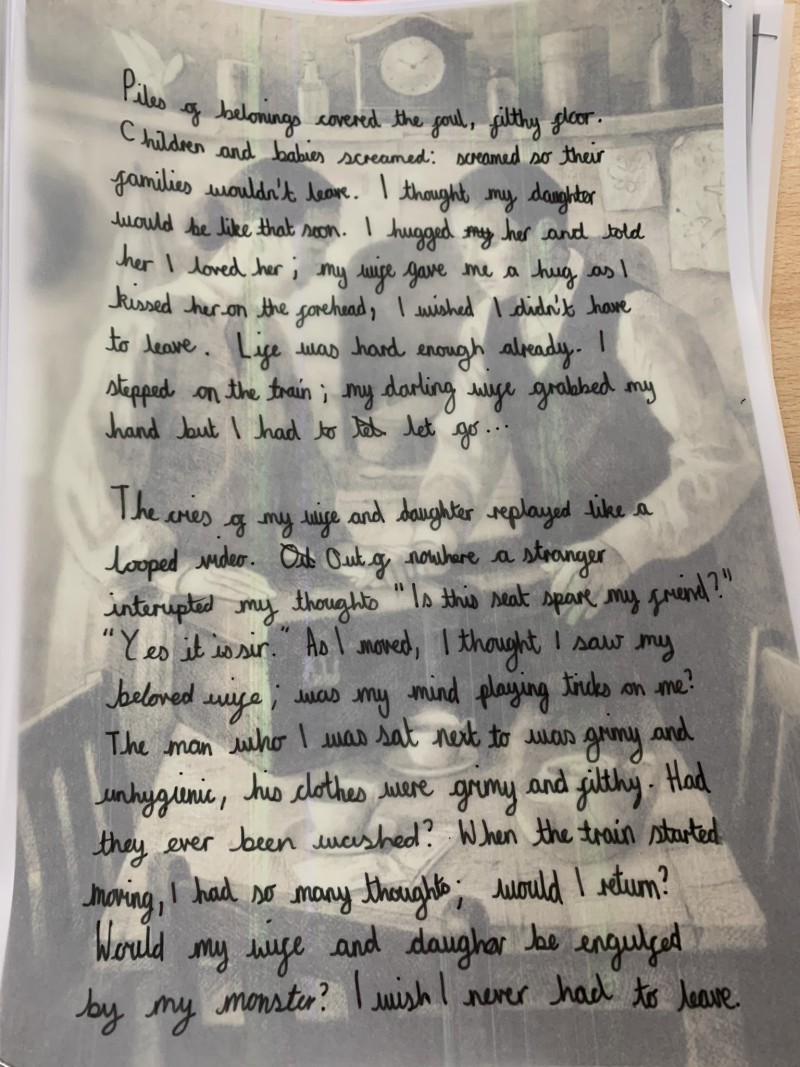 Piles of belonings covered the foul, filthy floor.
Children and babies screamed: screamed so their
families wouldn't leave. I thought my daughter
would be like that soon. I hugged my her and told
her I loved her; my wife gave me a hug as I
kissed her on the forehead, I wished I didn't have
to leave. Life was hard enough already. I
stepped on the train; my darling wife grabbed my
hand but I had to let go...
The cries of my wife and daughter replayed like a
looped video. Out of nowhere a stranger
interupted my thoughts "Is this seat spare my friend?"
"Yes it is sir." As I moved, I thought I saw my
beloved wife; was my mind playing tricks on me?
The man who I was sat next to was grimy and
unhygienic, his clothes were grimy and filthy. Had
they ever been washed? When the train started
moving, I had so many thoughts; would I return?
Would my wife and daugher be engulfed
by my monster? I wish I never had to leave.